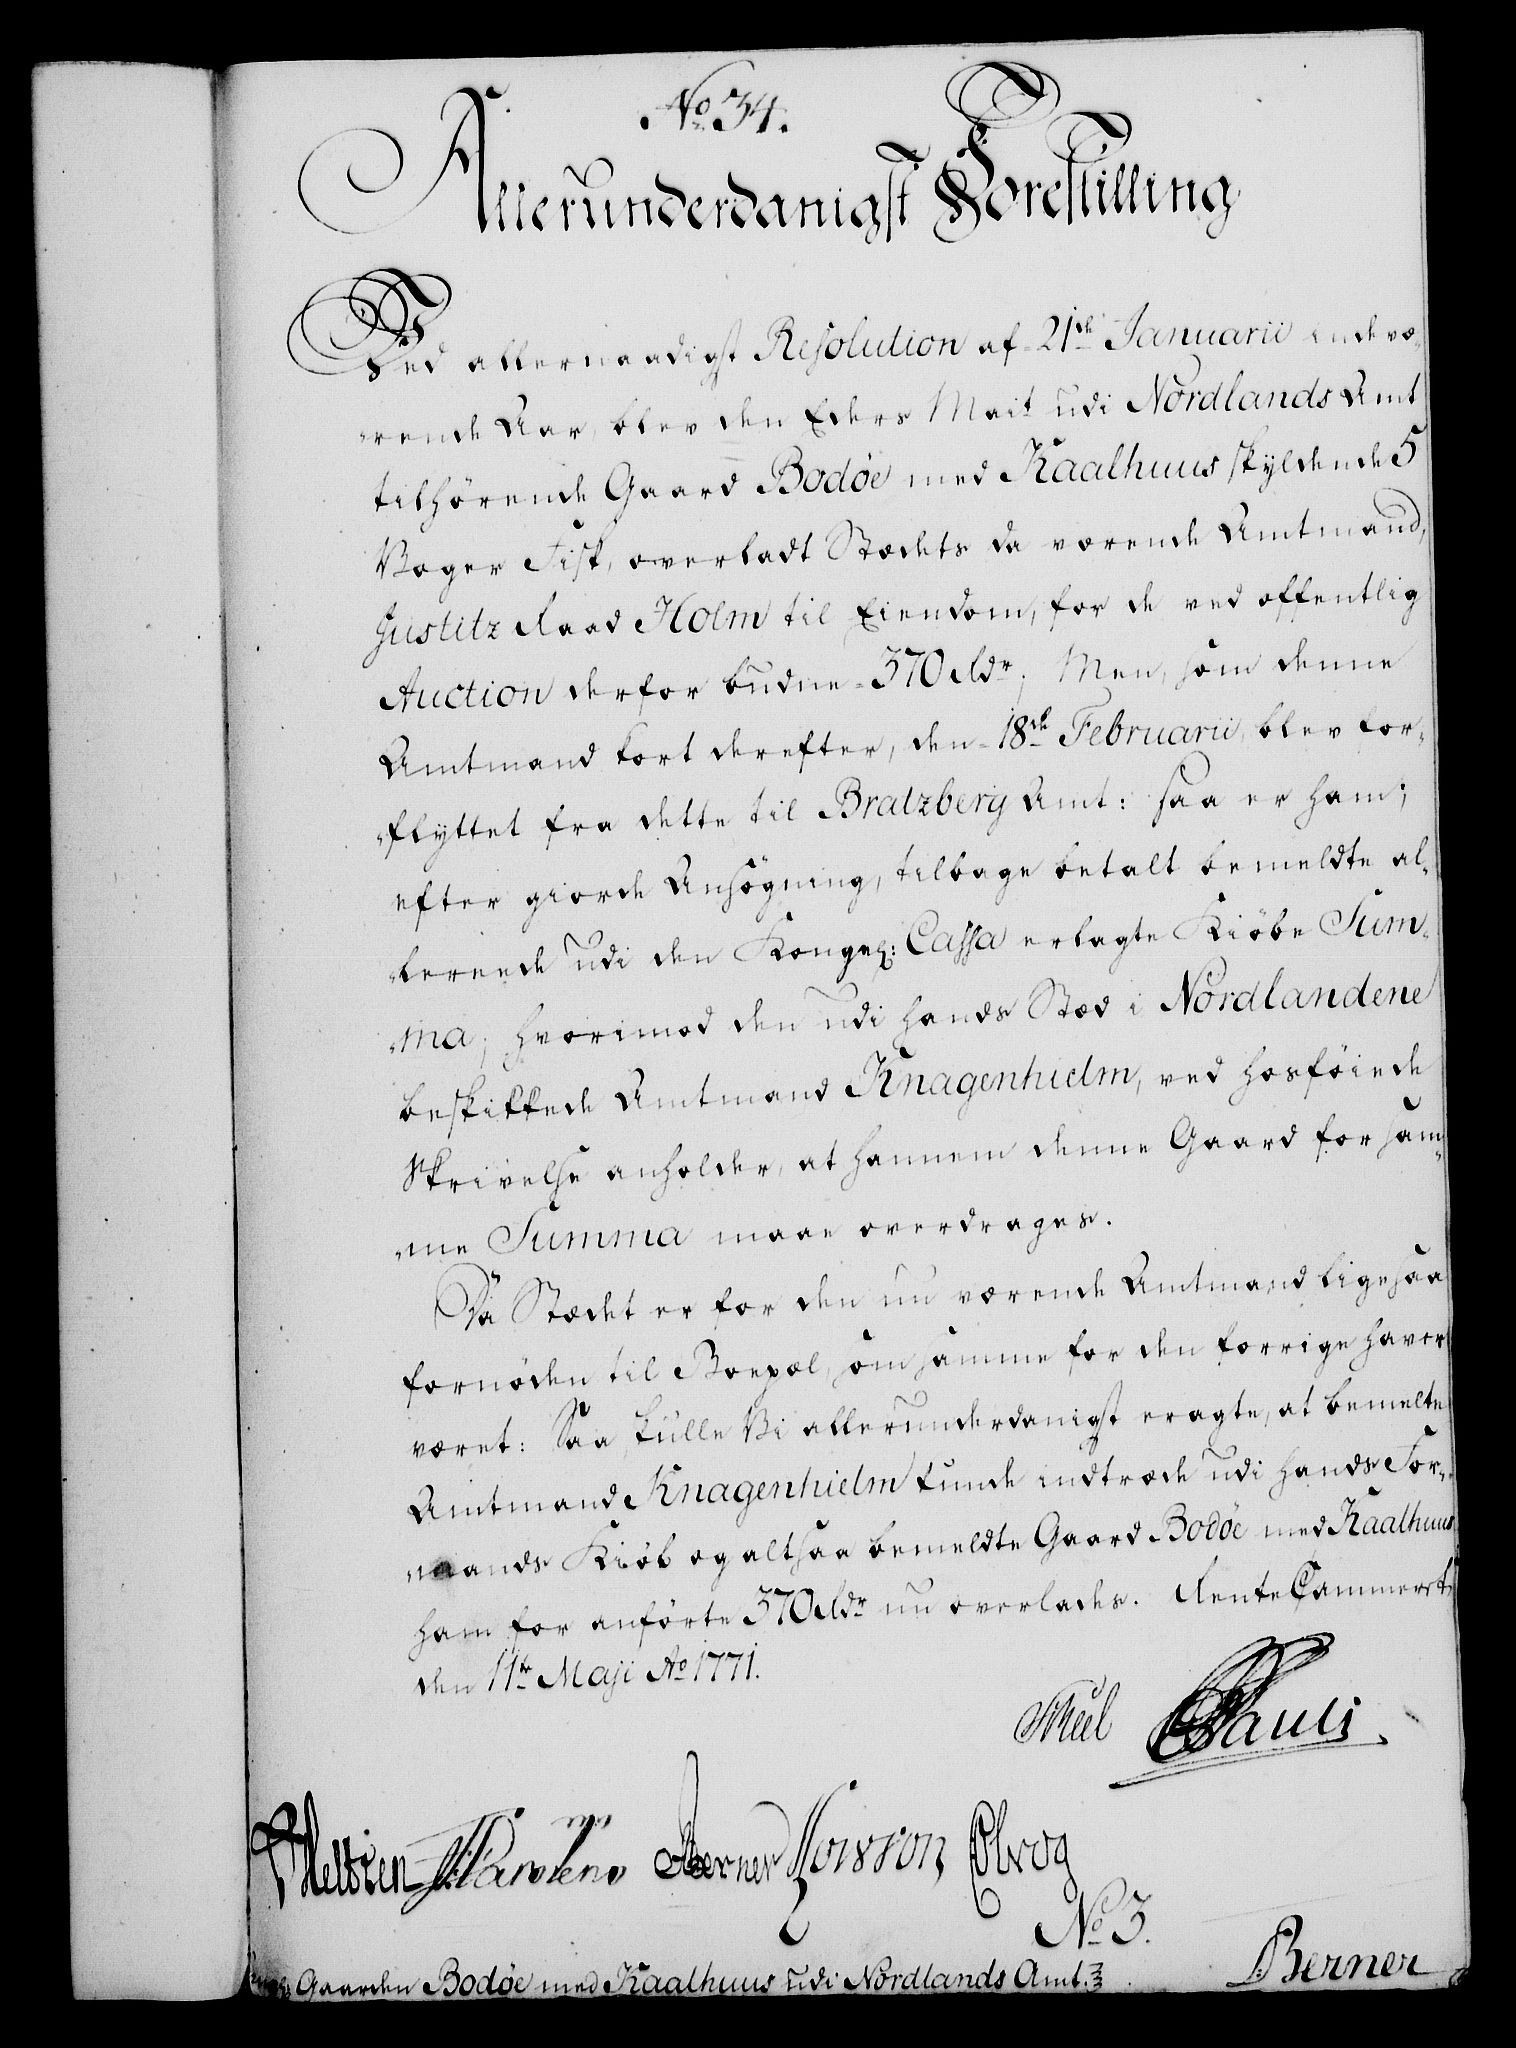 No 34.
Allerunderdanigst Forestilling
Ved allernaadigst Resolution af 21de Januarii indevæ-
rende Aar, blev den Eders Mait udi Nordlands Amt
tilhørende Gaard Bodøe med Kaalhuus skyldende 5
Voger Fisk, overladt Stædets da værende Amtmand,
Justitz Raad Holm til Eiendom, for de ved offentlig
Auction derfor budne 370 Rdr; Men, som denne
Amtmand kort derefter, den 18de Februarii, blev for-
flyttet fra dette til Bratzberg Amt: saa er ham,
efter giorde Ansøgning, tilbage betalt bemeldte al-
lereede udi den Kongel: Cassa erlagte Kiøbe Sum-
ma; hvorimod den udi hands Stæd i Nordlandene
beskikkede Amtmand Knagenhielm, ved hosføiede
Skrivelse anholder, at hannem denne Gaard for sam-
me Summa maae overdrages.
Da Stædet er for den nu værende Amtmand ligesaa
fornøden til Boepæl, som samme for den forrige haver
været: Saa skulle Vi allerunderdanigst eragte, at bemelte
Amtmand Knagenhielm kunde indtræde udi hands For-
mands Kiøb og altsaa bemeldte Gaard Bodøe med Kaalhuus
ham for anførte 370 Rdr nu overlades. Rente Cammeret
den 11te Maji Ao 1771.
Scheel Pauli
Berner
No 3.
Gaarden Bodøe med Kaalhuus udi Nordlands Amt.
Berner